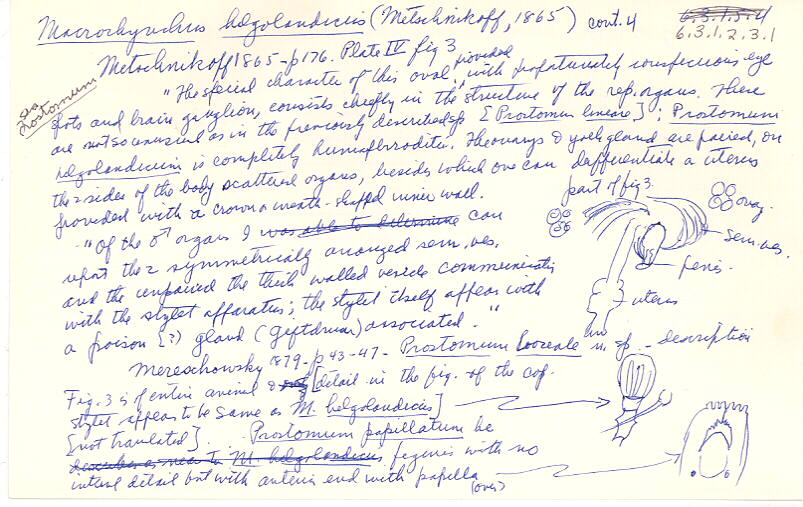 Macrorhynchus helgolandicus (Metschnikoff, 1865) cont. 4
6.3.1.5.4
6.3.1.2.3.1
Metschnikoff 1865 - p176. Plate IV fig 3
sea Prostomum
"The special character of this oval, provided with proportionately conspicuous eye
spots and brain ganglion, consists chiefly in the structure of the rep. organs. These
are not so unusual as in the previously described sp [Prostomum lineare]; Prostomum
helgolandicum is completely hermaphroditic. The ovarys & yolk gland are paired, on
the 2 sides of the body scattered organs, besides which one can differentiate a uterus
provided with a crown or wreath-shaped inner wall.
"Of the ♂ organs I was able to determine can
report the 2 symmetrically arranged sem. ves.
and the unpaired the thick walled vesicle communicating
with the stylet apparatus; the stylet itself appears with
a poison [?] gland (giftdrüse) associated."
part of fig 3.
ovary
sem. ves.
penis.
uterus
Mereschowsky 1879 - p 43-47 - Prostomum boreale n. sp. - description
Fig. 3 is of entire animal & [detail in the fig. of the cop.
stylet appears to be same as M. helgolandicus]
[not translated]. Prostomum papillatum be
describes as near to M. helgolandicus figures with no
internal detail but with anterior end with papilla
(over)